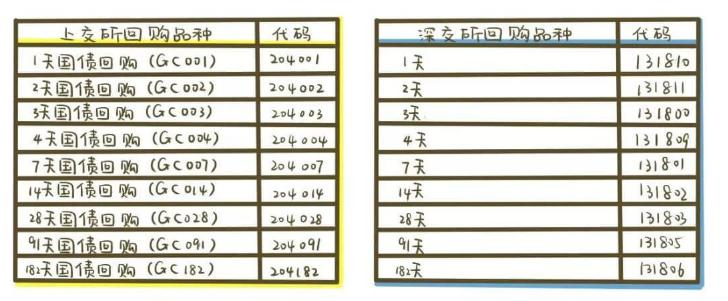 上交所回购品种 代码
1天国债回购(GC001) 204001
2天国债回购(GC002) 204002
3天国债回购(GC003) 204003
4天国债回购(GC004) 204004
7天国债回购(GC007) 204007
14天国债回购(GC014) 204014
28天国债回购(GC028) 204028
91天国债回购(GC091) 204091
182天国债回购(GC182) 204182
深交所回购品种 代码
1天 131810
2天 131811
3天 131800
4天 131809
7天 131801
14天 131802
28天 131803
91天 131805
182天 131806